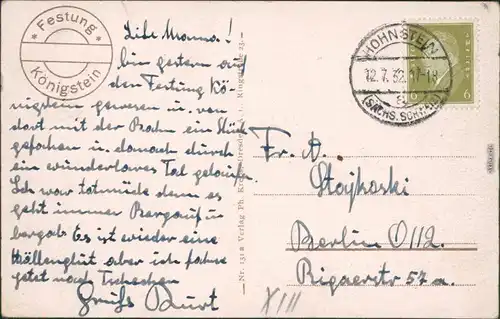 * Festung *
Königstein
Liebe Mamma!
bin gestern auf
der Festung Kö-
nigstein gewesen u. von
dort mit der Bahn ein Stück
gefahren u. danach durch
ein wunderbares Tal gelaufen
Ich war totmüde denn es
geht immer Bergauf u.
bergab Es ist wieder eine
Höllenglut aber ich fahre
jetzt nach Tschechen
Gruß Kurt
HOHNSTEIN
12.7.32. 17-18
(SÄCHS. SCHWEIZ)
6
Fr. A.
Stajkoski
Berlin O112.
Rigaerstr 57a.
XIII
Nr. 131 a Verlag Ph.